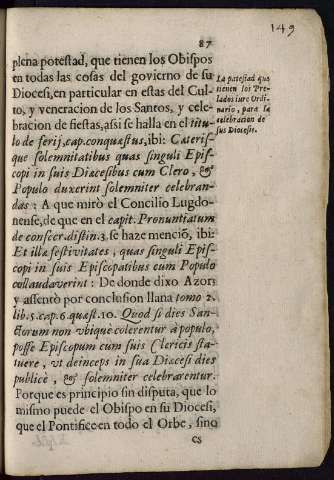 149
87
plena potestad, que tienen los Obispos
en todas las cosas del govierno de su
Diocesi, en particular en estas del Cul-
to, y veneracion de los Santos, y cele-
bracion de fiestas, assi se halla en el titu-
lo de ferij, cap. conquæstus, ibi: Caterisq́
que solemnitatibus quas singuli Epis-
copi in suis Diæcesibus cum Clero, &
Populo duxerint solemniter celebran-
das: A que mirò el Concilio Lugdo-
nense, de que en el capit. Pronuntiatum
de consecr. distin. 3. se haze menciõ, ibi:
Et illæ festivitates, quas singuli Epis-
copi in suis Episcopatibus cum Populo
collaudaverint: De donde dixo Azor,
y assentò por conclusion llana tomo 2.
lib. 5. cap. 6. quæst. 10. Quod si dies San-
ctorum non vbique colerentur à populo,
posse Episcopum cum suis Clericis sta-
tuere, vt deinceps in sua Diæcesi dies
publicè, & solemniter celebrarentur.
Porque es principio sin disputa, que lo
mismo puede el Obispo en su Diocesi,
que el Pontifice en todo el Orbe, sino
es
La potestad que
tienen los Pre-
lados iure Ordi-
nario, para la
celebracion de
sus Diocesis.